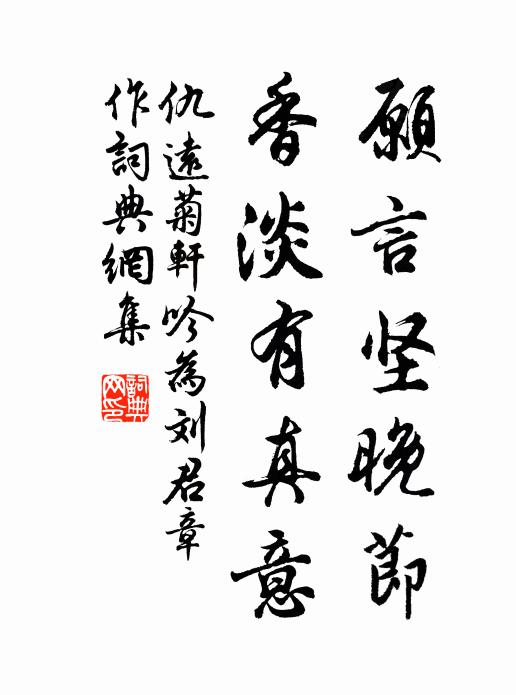 願言坚晚節
香淡有真意
仇遠菊軒吟為刘君章
作詞典網集
詞典网印